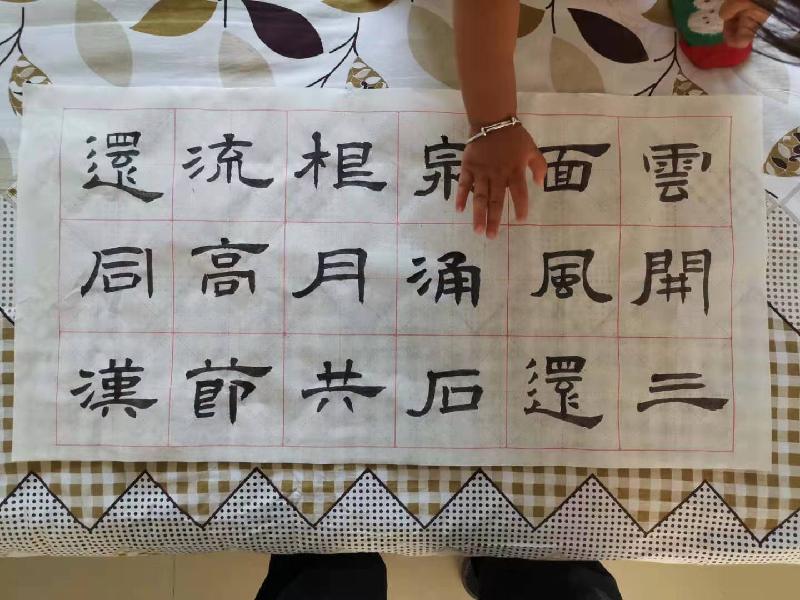 雲開三
面風還
泉涌石
相月共
流高節
還同漢